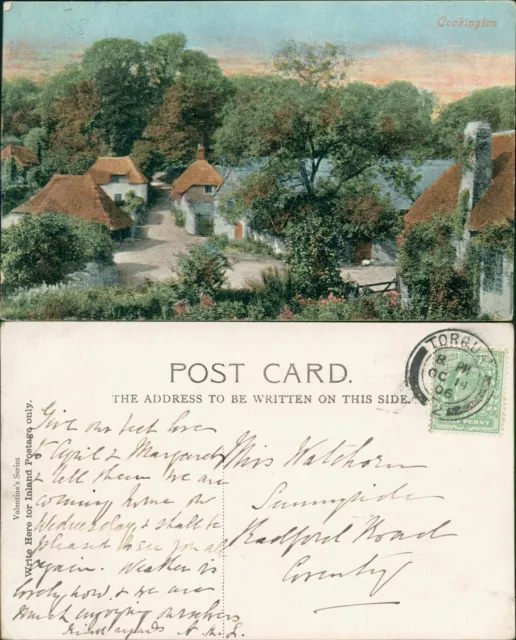 Cockington
POST CARD.
THE ADDRESS TO BE WRITTEN ON THIS SIDE.
Valentine's Series
Write Here for Inland Postage only.
TORQUAY
OC 14
06
Give our best love
to April & Margaret
& tell them we are
coming home on
Wednesday & shall be
pleased to see you all
again. Weather is
lovely now, & we are
much enjoying ourselves
Kind regards A. M. L.
Miss Watchorn
Sunnyside
Radford Road
Coventry